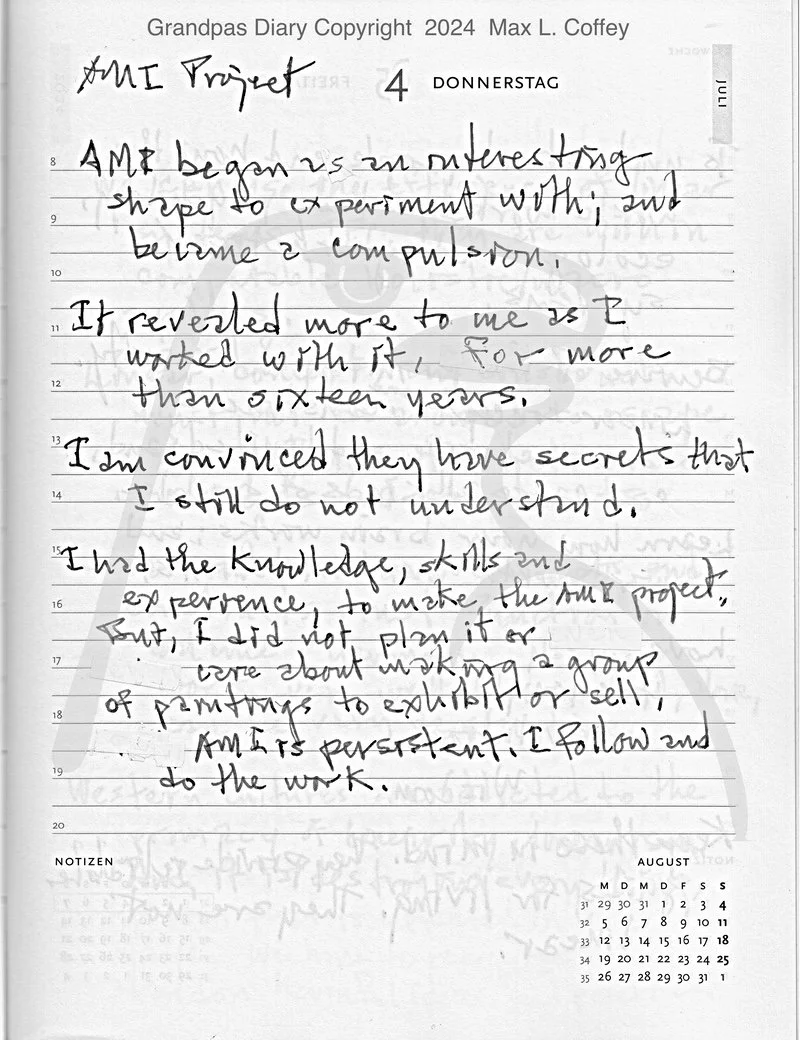 Grandpas Diary Copyright 2024 Max L. Coffey
AMI Project 4 DONNERSTAG
JULI
8 AMI began as an interesting
shape to experiment with; and
9
became a compulsion.
10
11 It revealed more to me as I
worked with it, For more
12 than sixteen years.
13 I am convinced they have secrets that
14 I still do not understand.
15 I had the knowledge, skills and
16 experience, to make the AMI project,
But, I did not plan it or
17 care about making a group
of paintings to exhibit or sell,
18
AMI is persistent. I follow and
19 do the work.
20
NOTIZEN
AUGUST
M D M D F S S
31 29 30 31 1 2 3 4
32 5 6 7 8 9 10 11
33 12 13 14 15 16 17 18
34 19 20 21 22 23 24 25
35 26 27 28 29 30 31 1